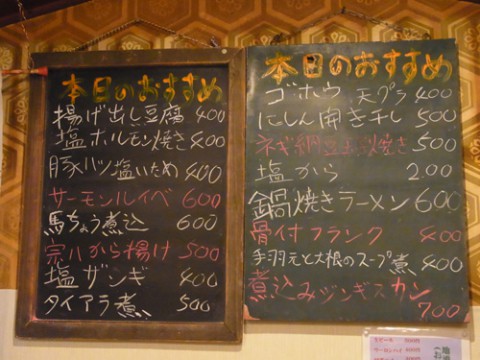 本日のおすすめ
揚げ出し豆腐 400
塩ホルモン焼き 400
豚ハツ塩いため 400
サーモンルイベ 600
馬ちょう煮込 600
宗八から揚げ 500
塩ザンギ 400
タイアラ煮 500
本日のおすすめ
ゴボウ天プラ 400
にしん開き干し 500
塩から 200
鍋焼きラーメン 600
骨付フランク 400
手羽元と大根のスープ煮 400
煮込みジンギスカン 700